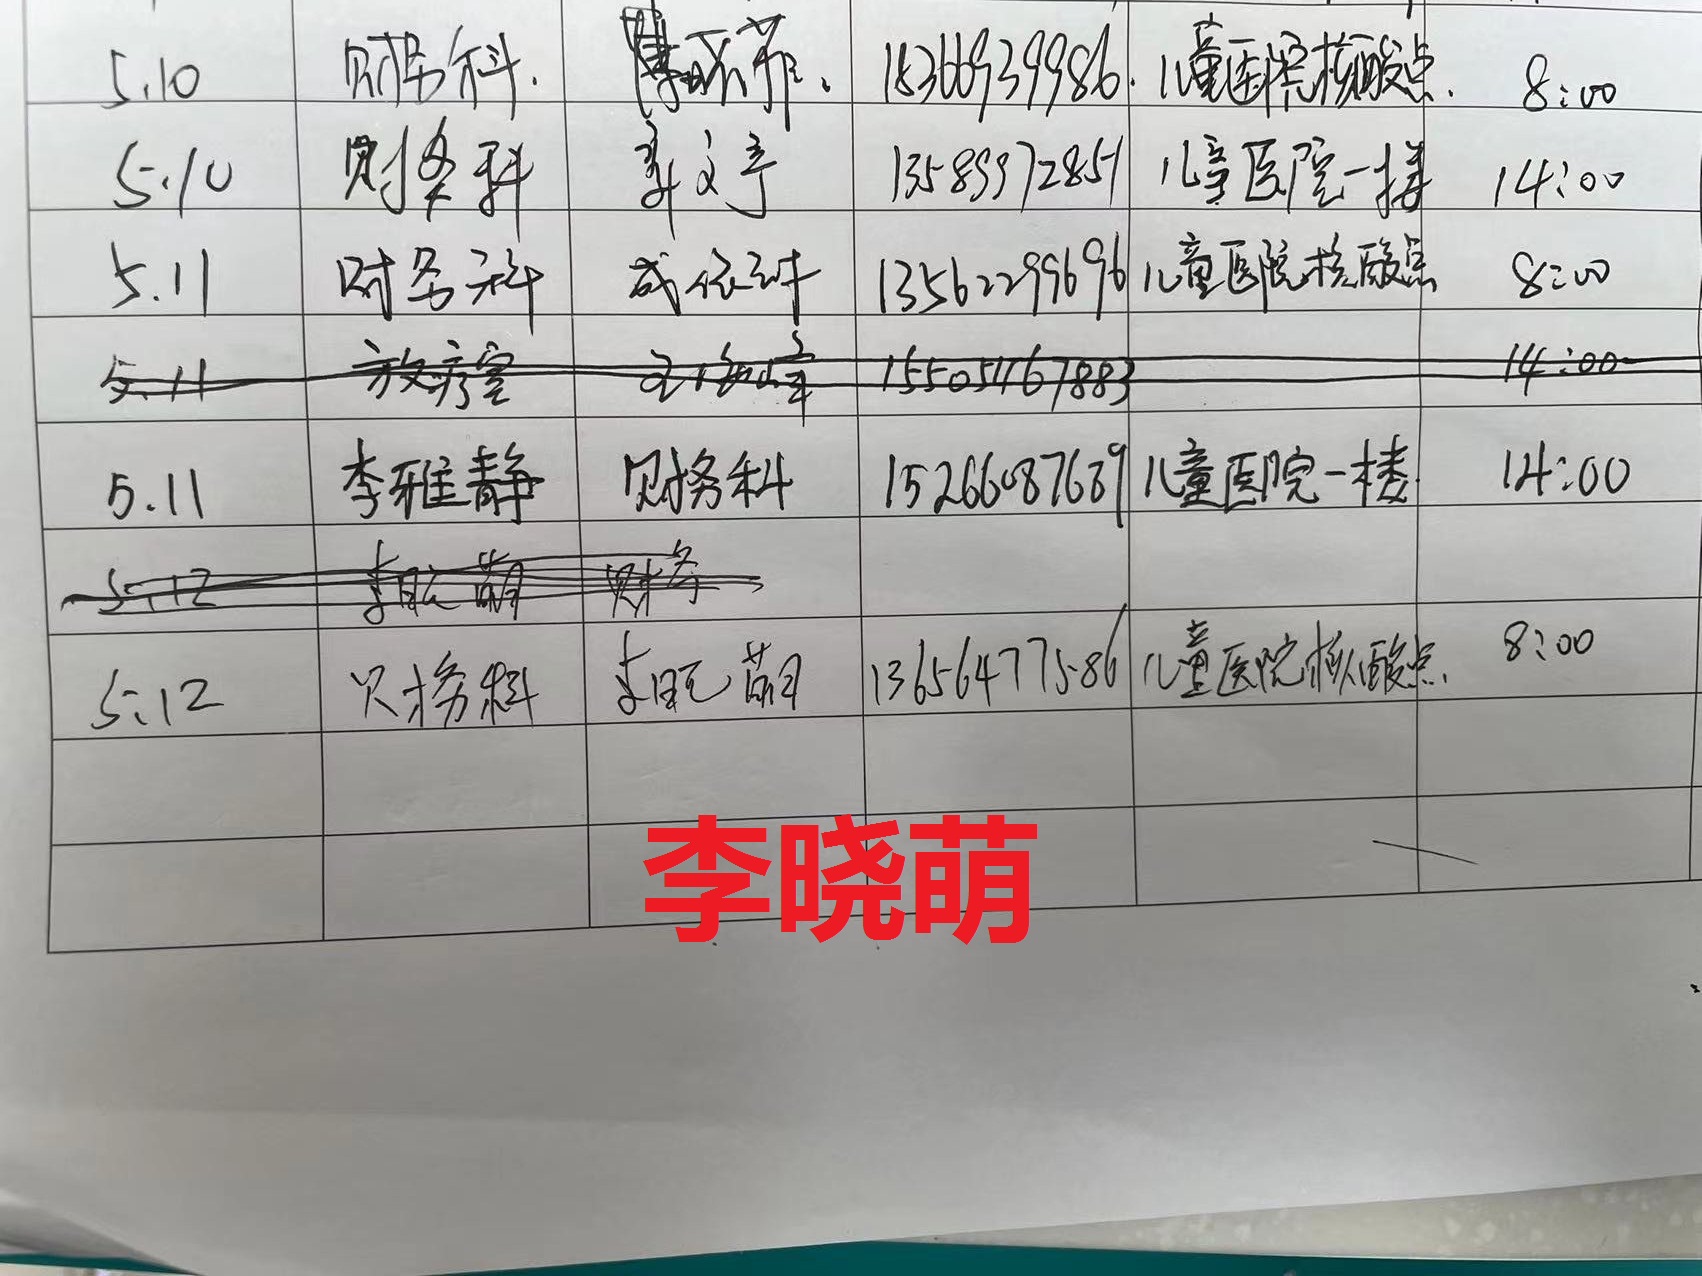 5.10 财务科. 18366939986. 儿童医院核酸点. 8:00
5.10 财务科 郭文亭 13589972851 儿童医院一楼 14:00
5.11 财务科 成依环 13562299696 儿童医院核酸点 8:00
5.11 放疗室 15505467883 14:00
5.11 李雅静 财务科 15266087689 儿童医院一楼 14:00
5.12 李晓萌 财务
5.12 财务科 李晓萌 13656477586 儿童医院核酸点. 8:00
李晓萌